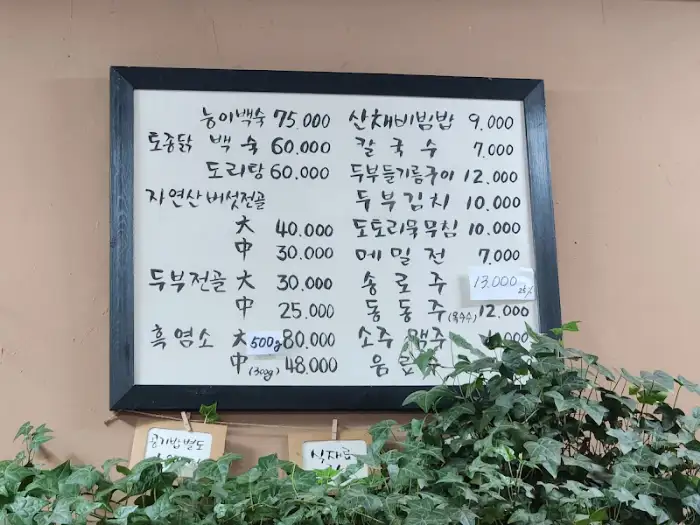 능이백숙 75.000
토종닭 백숙 60.000
도리탕 60.000
자연산버섯전골
大 40.000
中 30.000
두부전골 大 30.000
中 25.000
흑염소 大 500g 80.000
中 (300g) 48.000
산채비빔밥 9.000
칼국수 7.000
두부들기름구이 12.000
두부김치 10.000
도토리묵무침 10.000
메밀전 7.000
송로주 13.000 25%
동동주 (옥수수) 12.000
소주 맥주 .000
음
공기밥별도
식재료